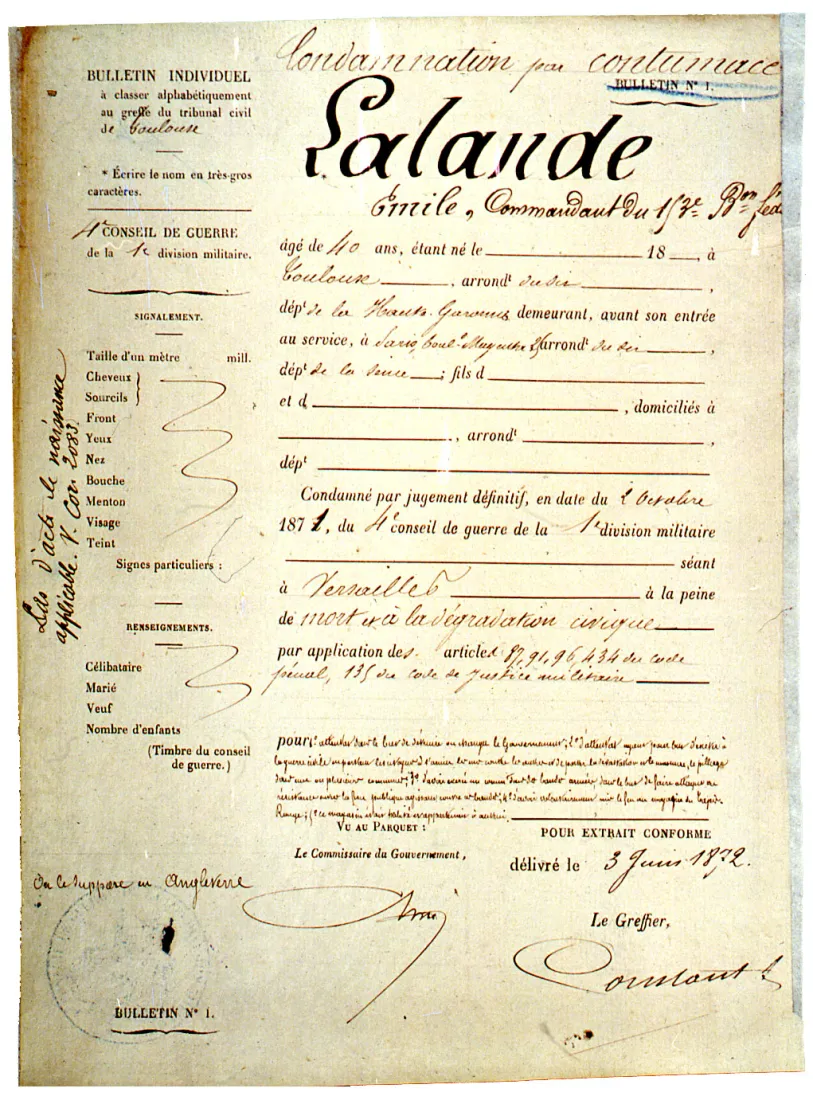 Condamnation par contumace
BULLETIN N° 1.
Lalande
Émile, Commandant du 153e Bon féd
BULLETIN INDIVIDUEL
à classer alphabétiquement
au greffe du tribunal civil
de Toulouse
* Écrire le nom en très-gros
caractères.
4e CONSEIL DE GUERRE
de la 1e division militaire.
SIGNALEMENT.
Taille d'un mètre mill.
Cheveux
Sourcils
Front
Yeux
Nez
Bouche
Menton
Visage
Teint
Signes particuliers :
RENSEIGNEMENTS.
Célibataire
Marié
Veuf
Nombre d'enfants
(Timbre du conseil
de guerre.)
Pas d'acte de naissance
applicable. V. Cor. 2083.
On le suppose en Angleterre
BULLETIN N° 1.
âgé de 40 ans, étant né le 18 , à
Toulouse , arrondt du dit ,
dépt de la Haute-Garonne demeurant, avant son entrée
au service, à Paris, boul. arrondt du dit ,
dépt de la Seine ; fils d
et d , domiciliés à
, arrondt ,
dépt
Condamné par jugement définitif, en date du 2 Octobre
1871, du 4e conseil de guerre de la 1e division militaire
séant
à Versailles à la peine
de mort et à la dégradation civique
par application des articles 87, 91, 96, 434 du code
pénal, 135 du code de justice militaire
pour 1° attentat dans le but de détruire ou changer le Gouvernement; 2° d'attentat ayant pour but d'exciter à
la guerre civile en portant les citoyens à s'armer les uns contre les autres et de porter la dévastation, le massacre, le pillage
dans une ou plusieurs communes; 3° d'avoir dans le but de faire attaque ou
résistance envers la force publique agissant contre
VU AU PARQUET :
Le Commissaire du Gouvernement,
POUR EXTRAIT CONFORME
délivré le 3 Juin 1872.
Le Greffier,
Constant